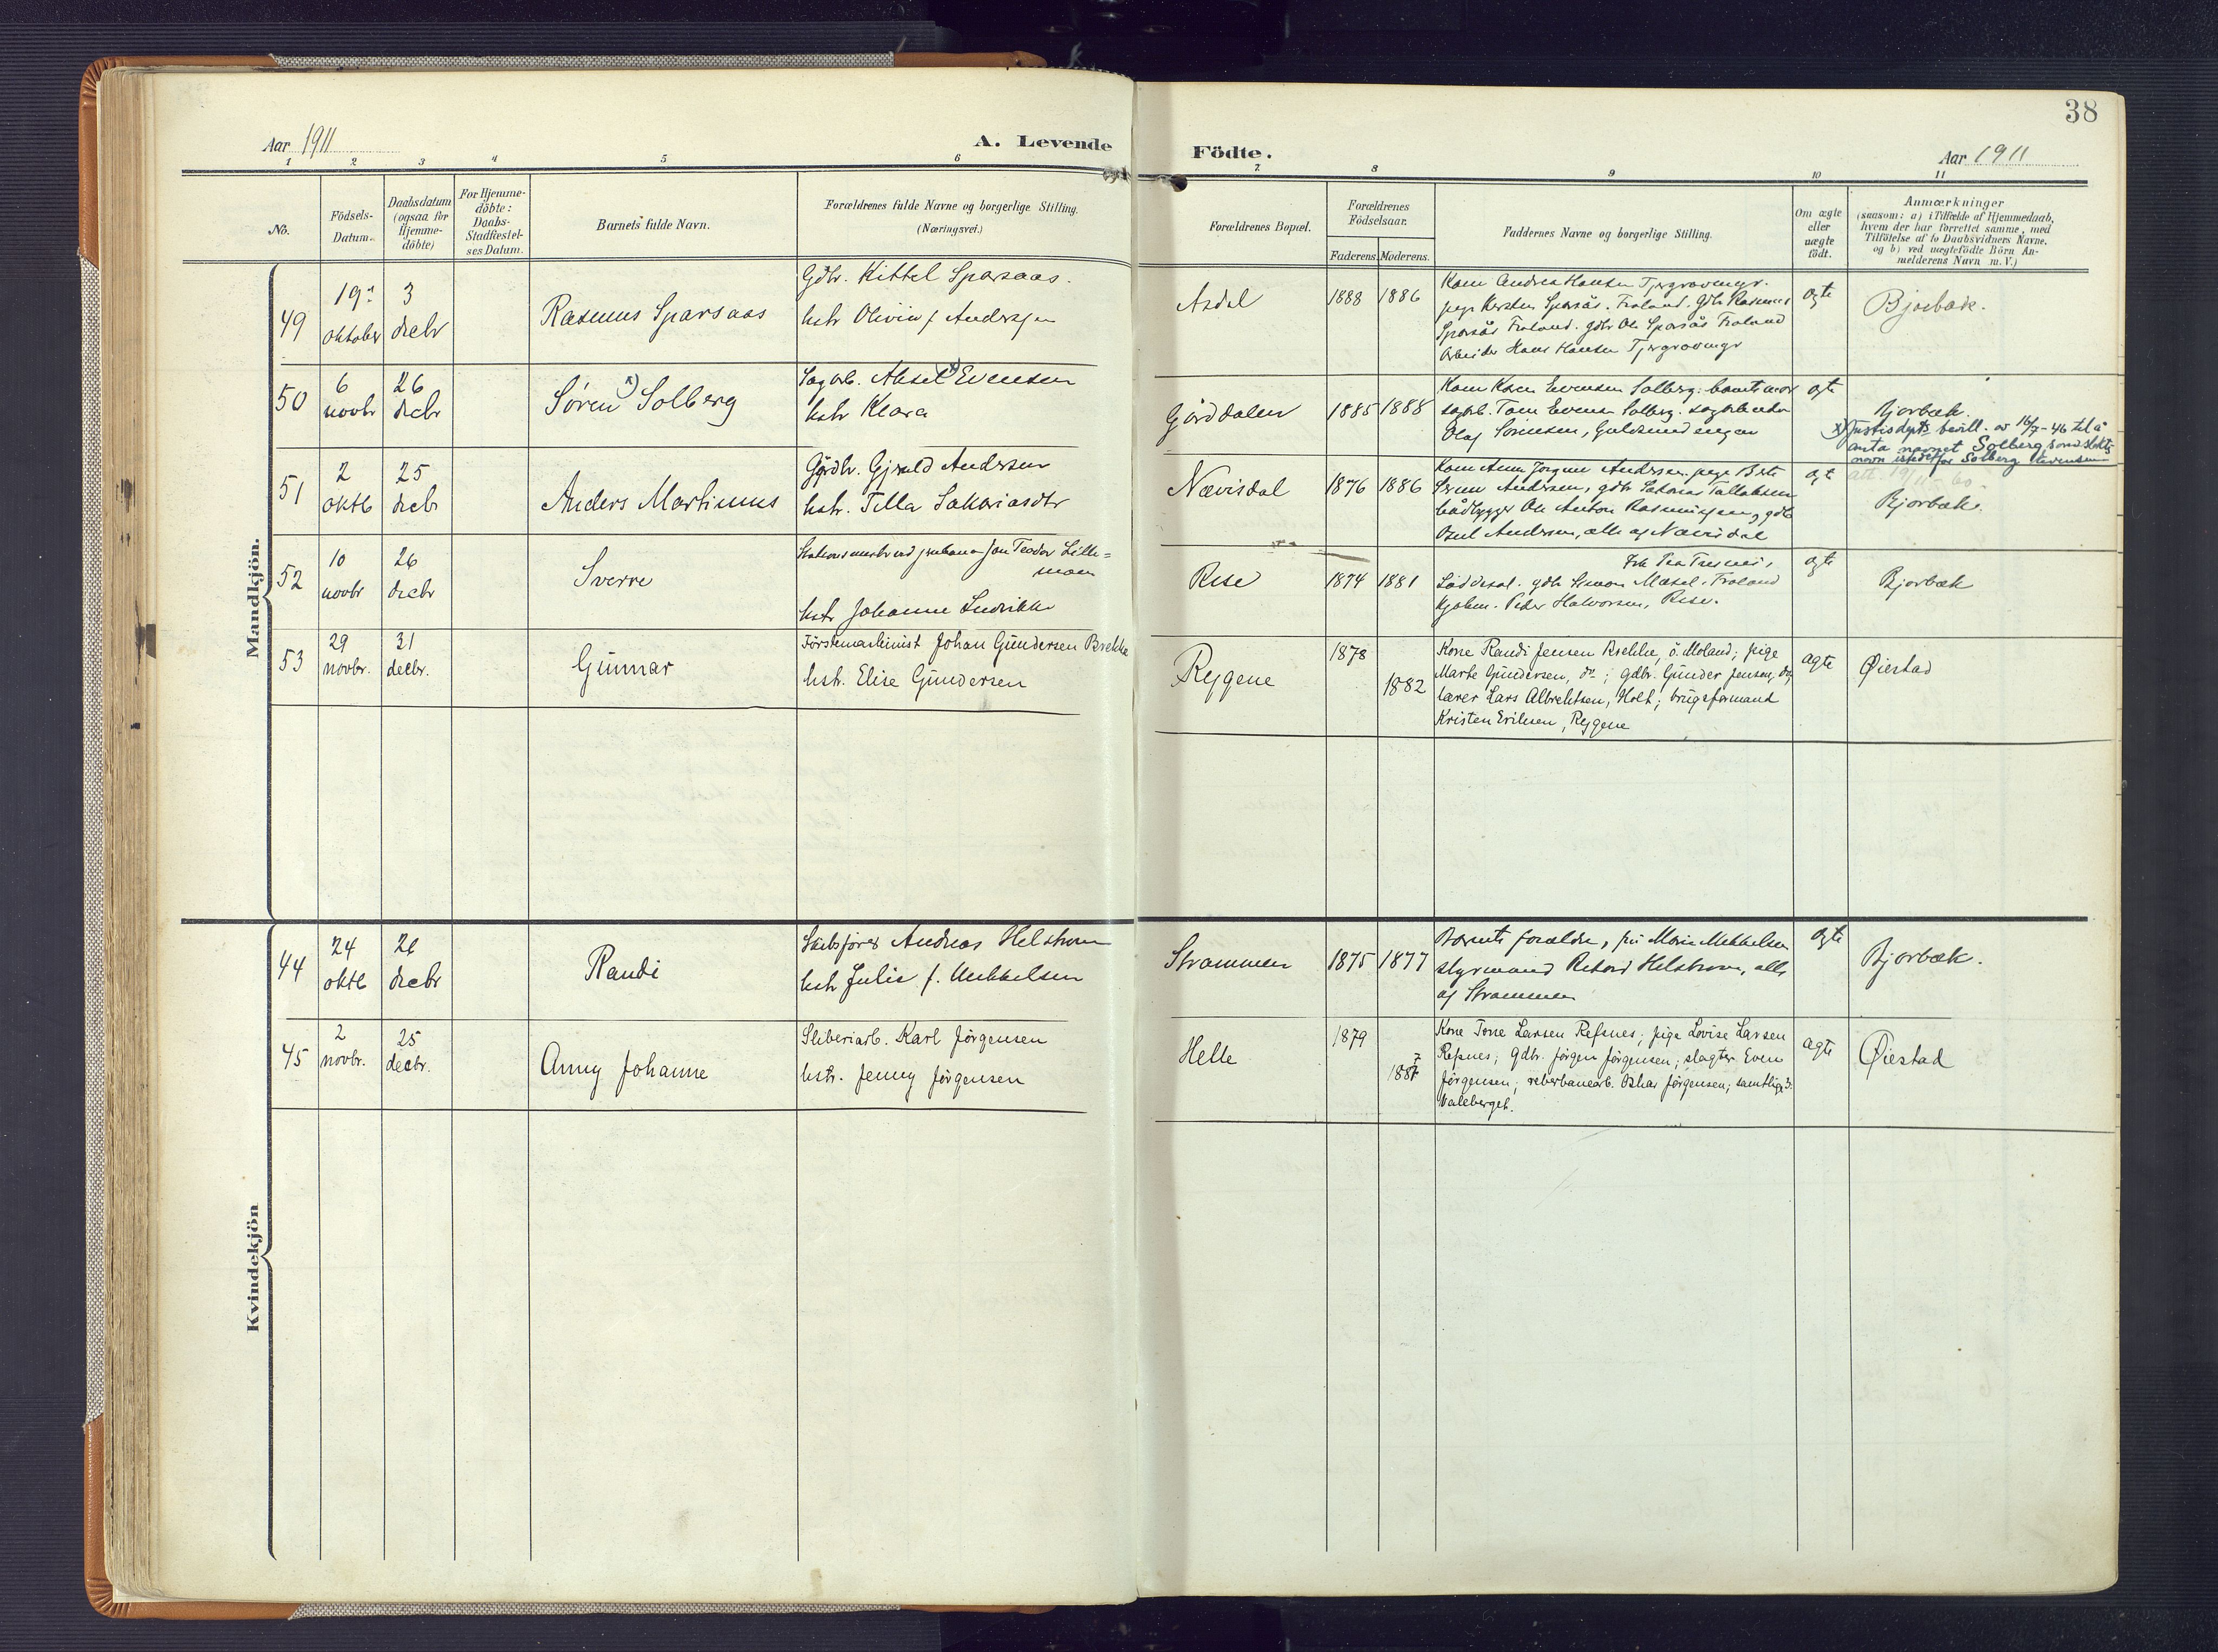 38
Aar 1911
A. Levende
Födte.
Aar 1911
1 2 3 4 5 6 7. 8 9 10 11
No.
Födsels-
Datum.
Daabsdatum
(ogsaa for
Hjemme-
döbte)
For Hjemme-
döbte:
Daabs-
Stadfæstel-
ses Datum.
Barnets fulde Navn.
Forældrenes fulde Navne og borgerlige Stilling.
(Næringsvei.)
Forældrenes Bopæl.
Forældrenes
Födselsaar.
Faderens. Moderens.
Faddernes Navne og borgerlige Stilling.
Om ægte
eller
uægte
födt.
Anmærkninger
(saasom: a) i Tilfælde af Hjemmedaab,
hvem der har forrettet samme, med
Tilföielse af to Daabsvidners Navne.
og b) ved uægtefödte Börn An-
melderens Navn m. V.)
Mandkjön.
49
19de
oktober
3
decbr
Rasmus Sparsaas
Gdbr. Kittel Sparsaas.
hstr Olivia f. Andersen
Asdal
1888 1886
Kone Andrea Hansen
pige Kirsten Sparsås. Froland. gdbr Rasmus
Sparsås Froland. gdbr Ole Sparsås Froland
Arbeider Hans Hansen
ægte
Bjorbæk.
50
6
novbr
26
decbr
Søren x) Solberg
Sagarb. Aksel x) Evensen
hstr Klara
Gjørddalen
1885 1888
Kone Karen Evensen Solberg. barnets mor
sagarb. Tom Evensen Solberg. sagarbeider
Olaf Sørensen,
ægte
Bjorbæk.
x) Justisdepts bevill. av 16/7-46 til å
anta navnet Solberg som slekts-
navn istedetfor Solberg Evensen
51
2
oktb
25
decbr
Anders Martinus
Gårdbr. Gjeruld Andersen
hstr. Tilla Sakariasdtr
Nævisdal
1876 1886
Kone Anne Jørgine Andersen. pige Berte
Serine Andersen, gdbr Sakarias Tallaksen
bådbygger Ole Anton Rasmussen, gdb
Osul Andersen, alle af Nævisdal
ægte
Bjorbæk.
52
10
novbr
26
decbr
Sverre
Stationsmester ved jernbanen Jon Teodor Lille-
moen
hstr Johanne Ludvikke
Rise
1874 1881
Frk Tea
gdbr Simon Mæsel, Froland
Kjøbm. Peder Halvorsen, Rise.
ægte
Bjorbæk
53
29
novbr.
31
decbr.
Gunnar
Förstemaskinist Johan Gundersen Brekka
hstr. Elise Gundersen
Rygene
1878
1882
Kone Randi Jensen Brekke, ö. Moland; pige
Marte Gundersen, do; gdbr. Gunder Jensen, do;
lærer Lars Albrektsen, Holt; brugsformand
Kristen Eriksen, Rygene
ægte
Øiestad
Kvindekjön
44
24
oktb
26
decbr
Randi
Skibsförer Andreas Helstrøm
hstr Julie f. Mikkelsen
Strømmen
1875 1877
Barnets forældre, frk Marie Mikkelsen
styrmand Rikard Helstrøm, alle
af Strømmen
ægte
Bjorbæk.
45
2
novbr.
25
decbr.
Anny Johanne
Sliberiarb. Karl Jörgensen
hstr. Jenny Jörgensen
Helle
1879
1887
Kone Tone Larsen Refsnes; pige Lovise Larsen
Refsnes; gdbr. Jörgen Jörgensen; slagter Even
Jörgensen; reberbanearb. Oskar Jörgensen; samtlige 3:
Valeberget.
ægte
Øiestad